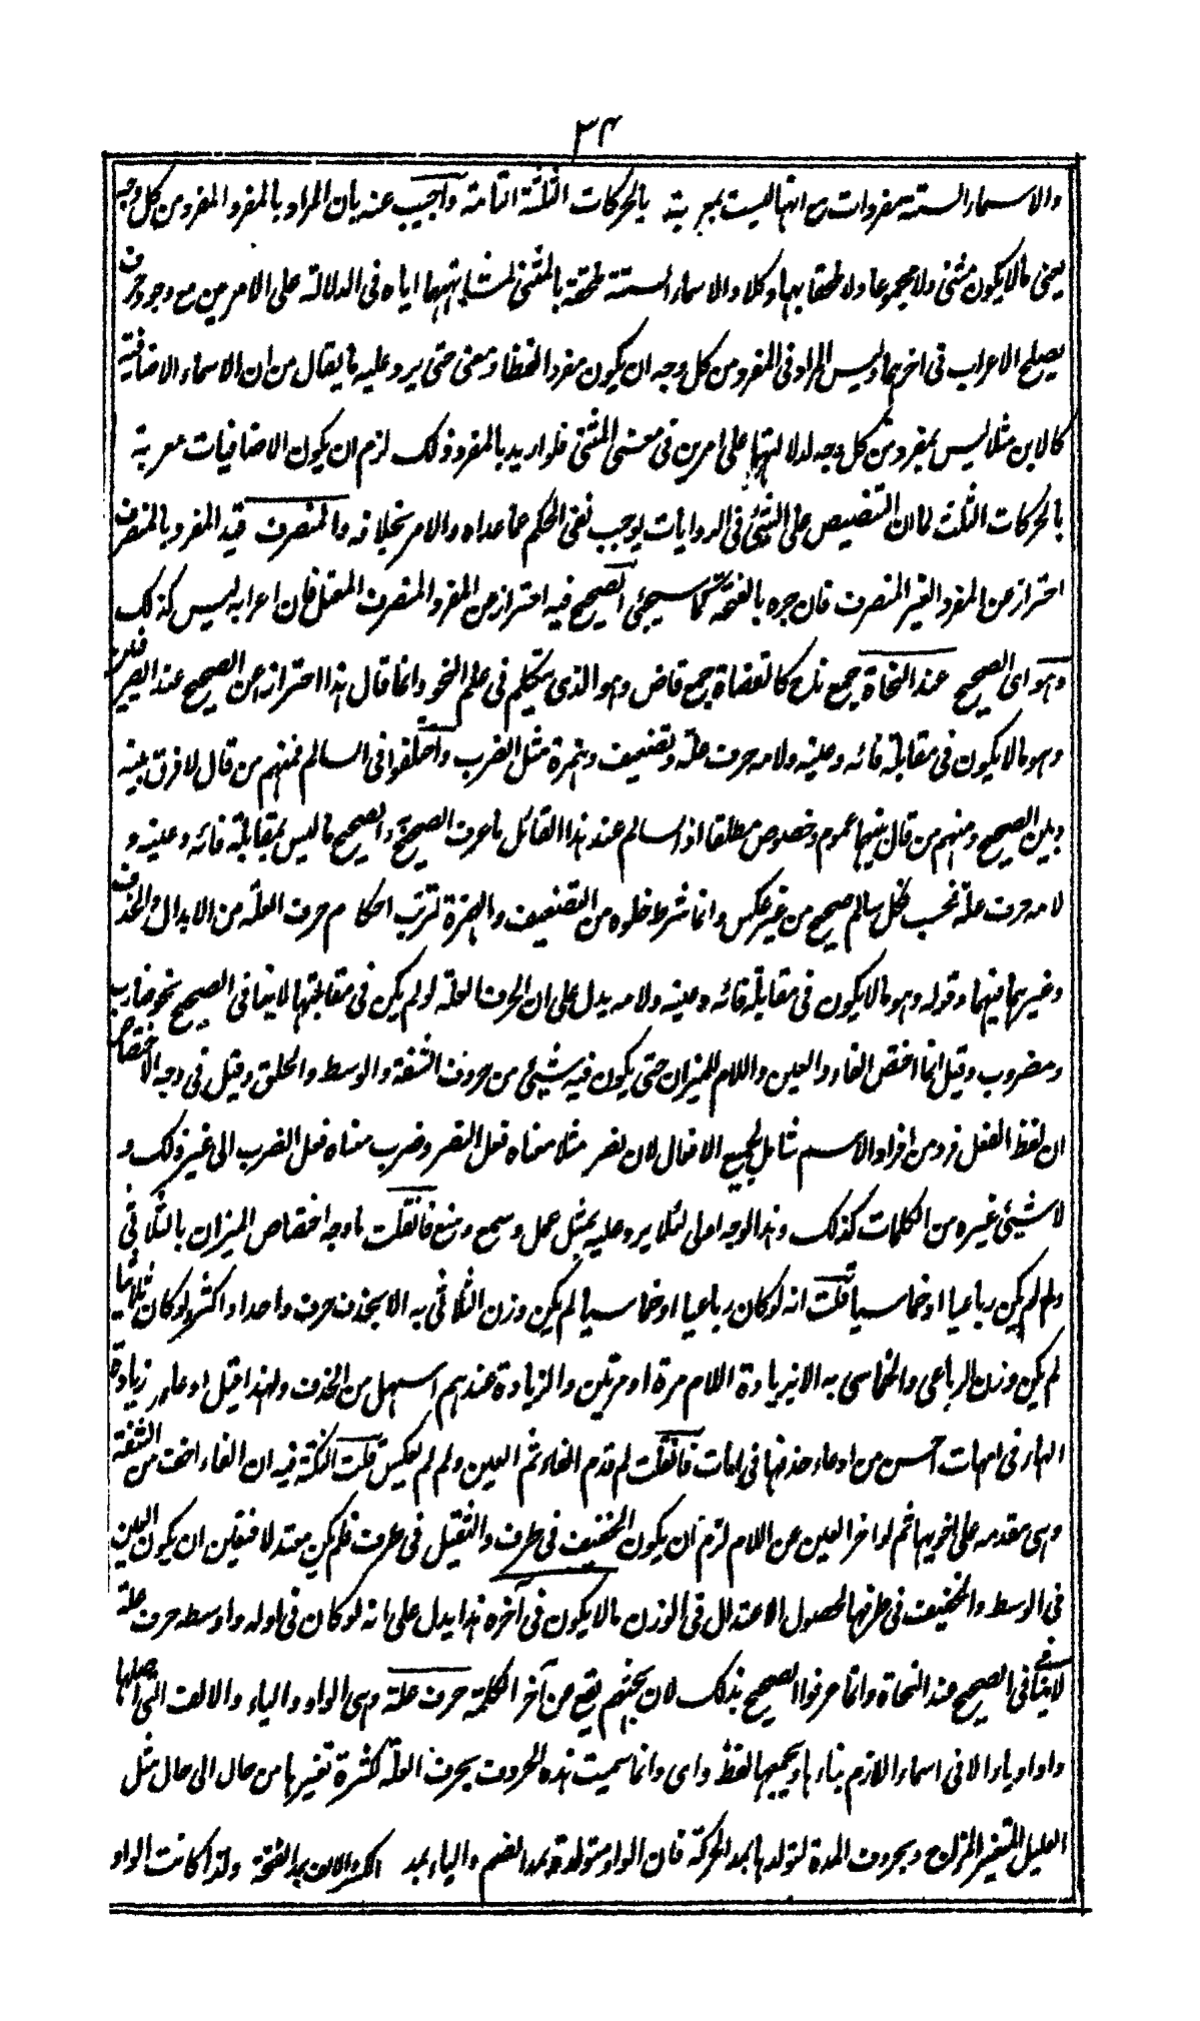 ٣٤
والاسماء الستة مفردات مع انها ليست بمعربة بالحركات الثلثة التامة واجيب عنه بان المراد بالمفرد المفرد من كل وجه
يعنى مالا يكون مثنى ولا مجموعا ولا ملحقا بهما وكلا والاسماء الستة ملحقة بالمثنى لمشابهتهما اياه فى الدلالة على الامرين مع وجود حرف
يصلح الاعراب فى اخرهما وليس المراد فى المفرد من كل وجه ان يكون مفردا لفظا ومعنى حتى يرد عليه ما يقال من ان الاسماء الاضافية
كالابن مثلا ليس بمفرد من كل وجه لدلالتها على امرين فى معنى المثنى فلو اريد بالمفرد ذلك لزم ان يكون الاضافيات معربة
بالحركات الثلث لما ان التنصيص على الشئ فى الروايات يوجب نفى الحكم عما عداه والامر بخلافه والمنصرف قيد المفرد بالمنصرف
احتراز عن المفرد الغير المنصرف فان جره بالفتحة كما سيجئ الصحيح فيه احتراز عن المفرد المنصرف المعتل فان اعرابه ليس كذلك
وهو اى الصحيح عند النحاة جمع ناح كالقضاة جمع قاض وهو الذى يتكلم فى علم النحو وانما قال هذا احتراز عن الصحيح عند الصرفيين
وهو مالا يكون فى مقابلة فائه وعينه ولامه حرف علة وتضعيف وهمزة مثل الضرب واختلفوا فى السالم فمنهم من قال لا فرق بينه
وبين الصحيح ومنهم من قال بينهما عموم وخصوص مطلقا اذ السالم عند هذا القائل ما عرف الصحيح والصحيح ما ليس بمقابلة فائه وعينه و
لامه حرف علة فحسب فكل سالم صحيح من غير عكس وانما شرط خلوه من التضعيف والهمزة لترتب احكام حرف العلة من الابدال والحذف
وغيرهما فيهما وقوله وهو مالا يكون فى مقابلة فائه وعينه ولامه يدل على ان الحرف العلة لو لم يكن فى مقابلتها لا ينافى الصحيح نحو ضارب
ومضروب وقيل انما اختص الفاء والعين واللام للميزان حتى يكون فيه شيئ من حروف الشفة والوسط والحلق وقيل فى وجه الاختصاص
ان لفظ الفعل فرد من افراد الاسم شامل لجميع الافعال لان نصر مثلا معناه فعل النصر وضرب معناه فعل الضرب الى غير ذلك و
لا شيئ غيره من الكلمات كذلك وهذا لوجه اولى لئلا يرد عليه بمثل عمل وسمع ومنع فانقلت ما وجه اختصاص الميزان بالثلاثى
ولم لم يكن رباعيا او خماسيا قلت انه لو كان رباعيا او خماسيا لم يكن وزن الثلاثى به الا بحذف حرف واحد او اكثر ولو كان ثلاثيا
لم يكن وزن الرباعى والخماسى به الا بزيادة اللام مرة او مرتين والزيادة عندهم اسهل من الحذف ولهذا قيل ادعاء زيادة
الهاء فى امهات احسن من ادعاء حذفها فى امات فانقلت لم قدم الفاء ثم العين ولم لم يعكس قلت النكتة فيه ان الفاء اخف من الشفة
وهى مقدمة على اخويها ثم لو اخر العين عن اللام لزم ان يكون الخفيف فى طرف والثقيل فى طرف فلم يكن معتدلا فتعين ان يكون العين
فى الوسط والخفيف فى طرفها لحصول الاعتدال فى الوزن مالا يكون فى آخره هذا يدل على انه لو كان فى اوله واوسطه حرف علة
لا ينافى الصحيح عند النحاة وانما عرفوا الصحيح بذلك لان بحثهم يقع عن آخر الكلمة حرف علة وهى الواو والياء والالف التى اصلها
واو او ياء الا فى اسماء اللازم بناءها ويجمعها لفظ واى وانما سميت هذه الحروف بحرف العلة لكثرة تغيرها من حال الى حال مثل
العليل المتغير المزاج وبحروف المدة لتولدها بمد الحركة فان الواو متولدة بمد الضم والياء بمد الكسر والالف بمد الفتحة ولذا كانت الواو